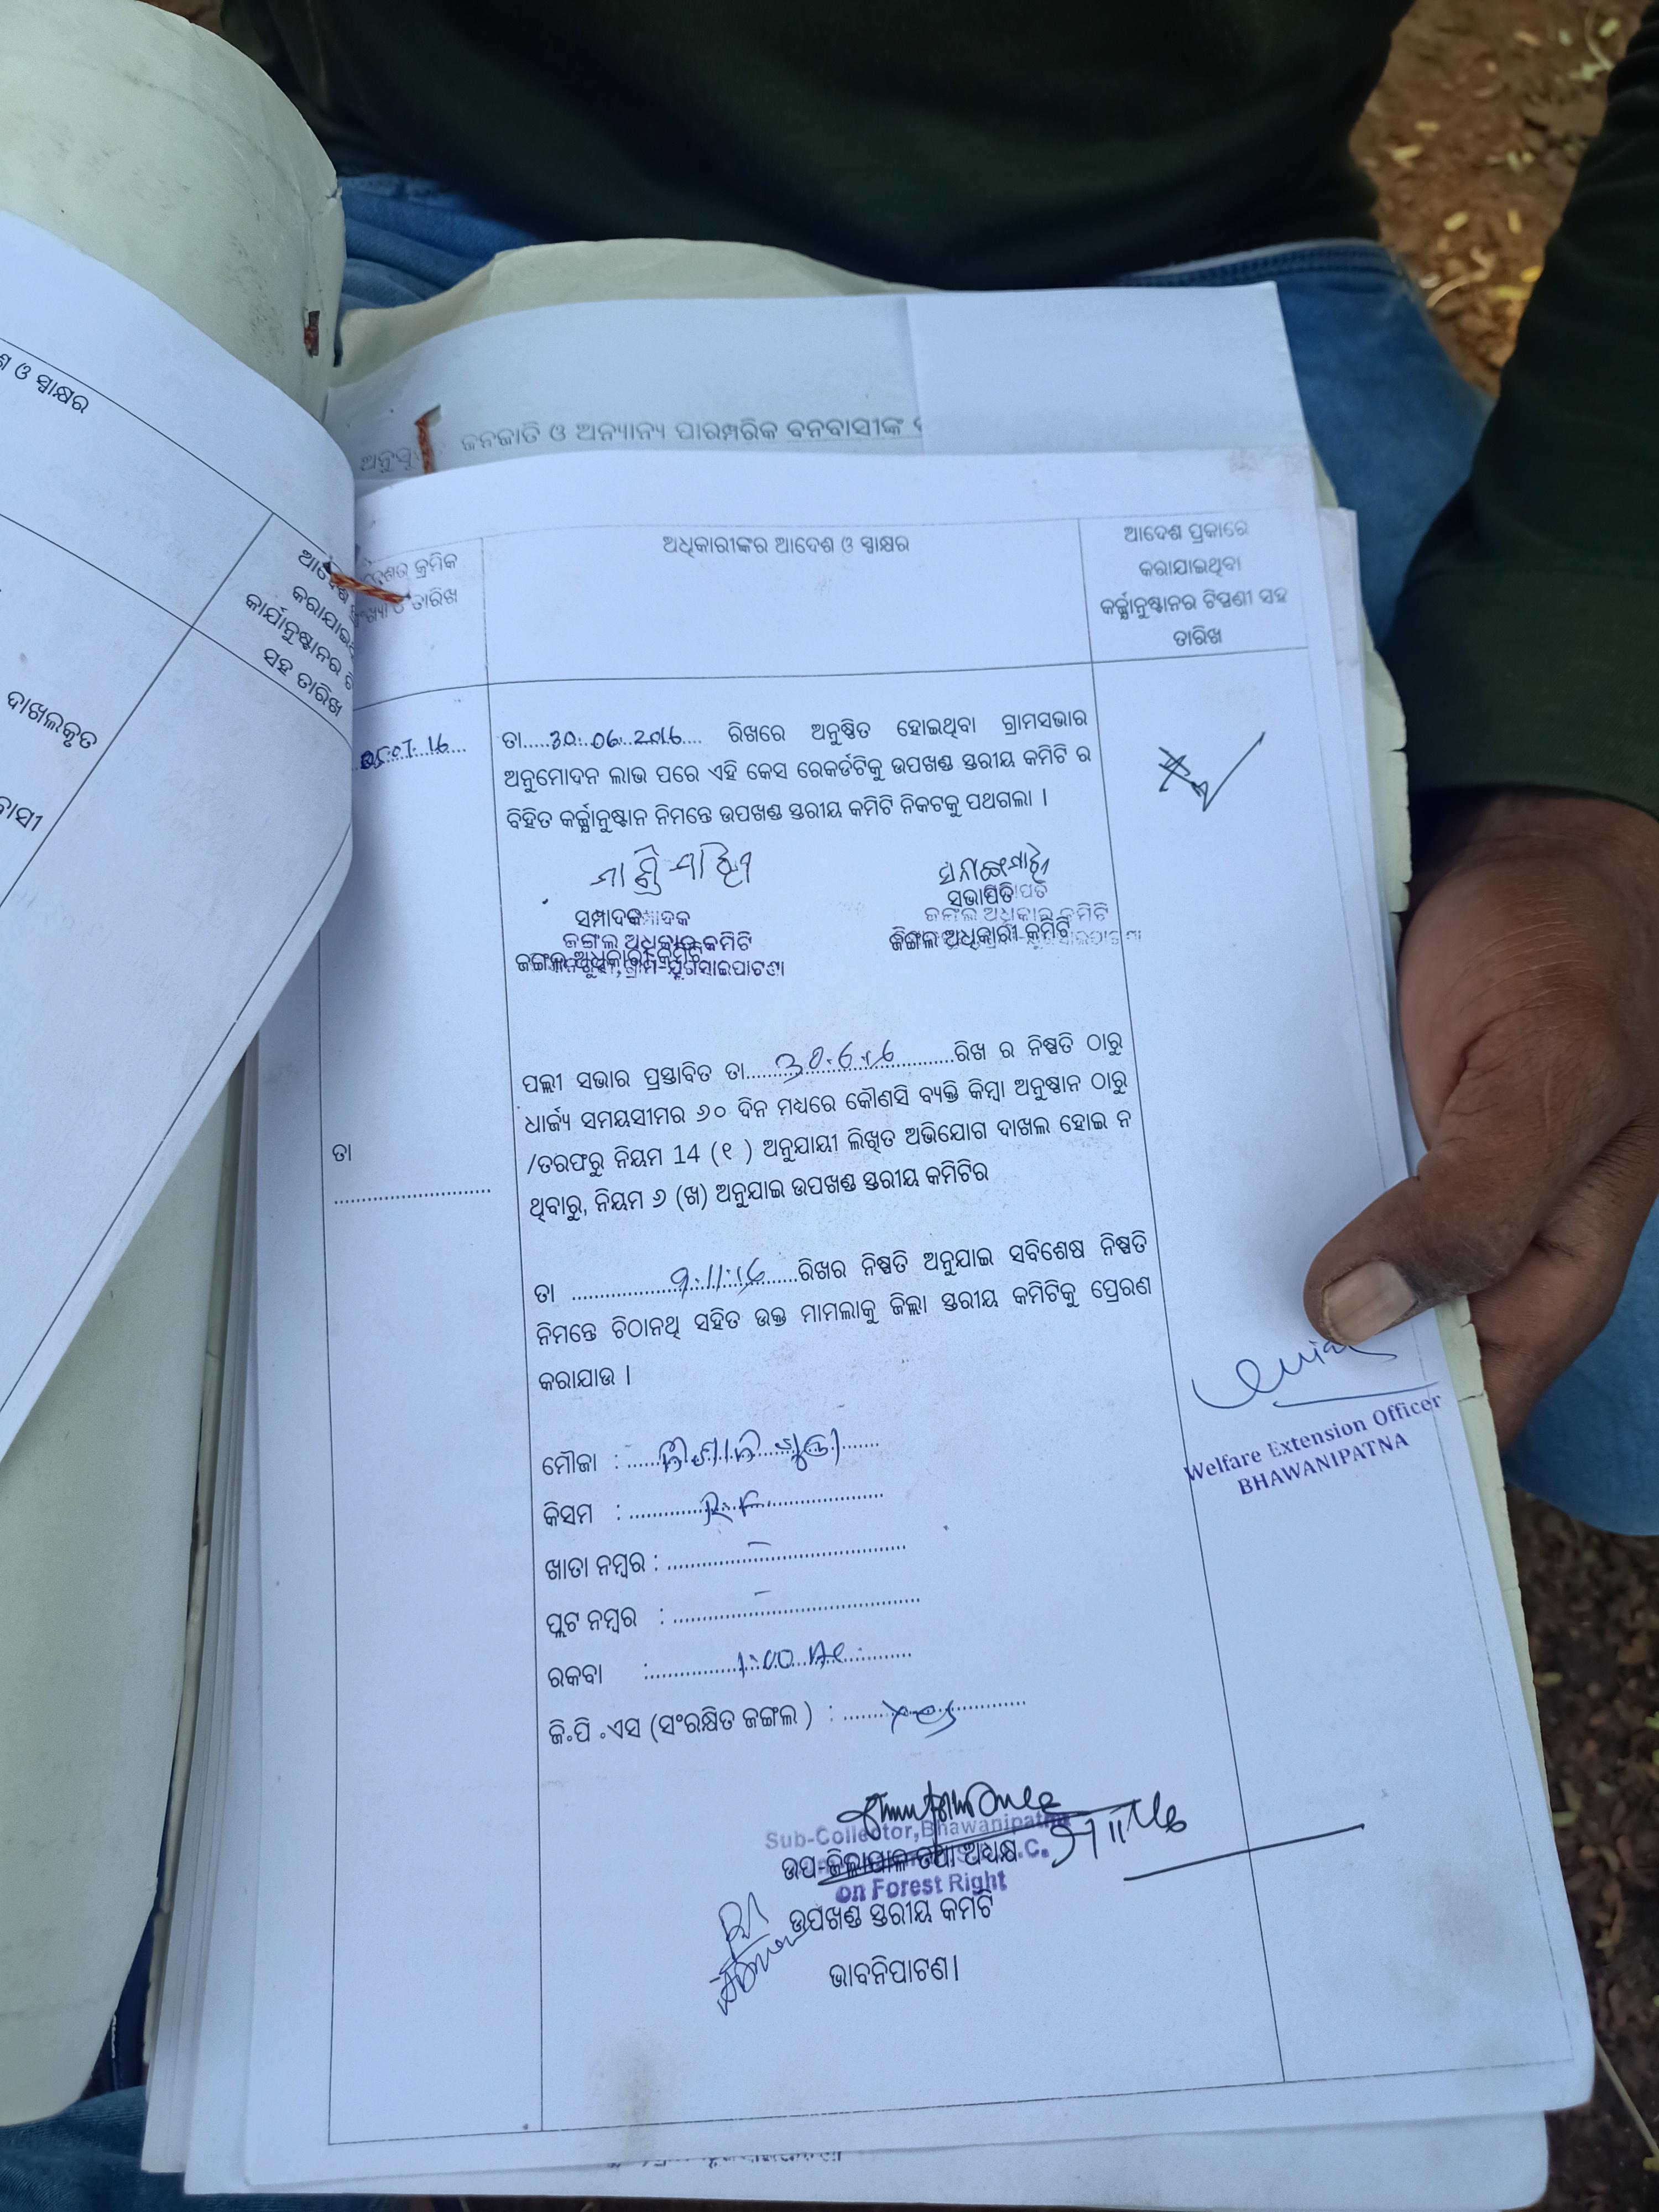 ଶ ଓ ସ୍ୱାକ୍ଷର
ଆଦେଶ
କରାଯାଇ
କାର୍ଯାନୁଷ୍ଠାନର ଟି
ସହ ତାରିଖ
ଦାଖଲକୃତ
ବାସୀ
ଜନଜାତି ଓ ଅନ୍ୟାନ୍ୟ ପାରମ୍ପରିକ ବନବାସୀଙ୍କ
କ୍ରମିକ
ଓ ତାରିଖ
ଅଧିକାରୀଙ୍କର ଆଦେଶ ଓ ସ୍ୱାକ୍ଷର
ଆଦେଶ ପ୍ରକାରେ
କରାଯାଇଥିବା
କର୍ଯ୍ଯାନୁଷ୍ଠାନର ଟିପ୍ପଣୀ ସହ
ତାରିଖ
05.07.16
ତା.....30.06.2016.... ରିଖରେ ଅନୁଷ୍ଠିତ ହୋଇଥିବା ଗ୍ରାମସଭାର
ଅନୁମୋଦନ ଲାଭ ପରେ ଏହି କେସ ରେକର୍ଡଟିକୁ ଉପଖଣ୍ଡ ସ୍ତରୀୟ କମିଟି ର
ବିହିତ କର୍ଯ୍ଯାନୁଷ୍ଠାନ ନିମନ୍ତେ ଉପଖଣ୍ଡ ସ୍ତରୀୟ କମିଟି ନିକଟକୁ ପଥଗଲା ।
ସମ୍ପାଦକ
ଜଙ୍ଗଲ ଅଧିକାର କମିଟି
ଜଙ୍ଗଲ ଅଧିକାରୀ କମିଟି
ସଭାପତି
ଜଙ୍ଗଲ ଅଧିକାର କମିଟି
ଜଙ୍ଗଲ ଅଧିକାରୀ କମିଟି
ପଲ୍ଲୀ ସଭାର ପ୍ରସ୍ତାବିତ ତା......30.6.16.......ରିଖ ର ନିଷ୍ପତି ଠାରୁ
ଧାର୍ଜ୍ୟ ସମୟସୀମର ୬୦ ଦିନ ମଧ୍ୟରେ କୌଣସି ବ୍ୟକ୍ତି କିମ୍ବା ଅନୁଷ୍ଠାନ ଠାରୁ
/ତରଫରୁ ନିୟମ 14 (୧ ) ଅନୁଯାୟୀ ଲିଖିତ ଅଭିଯୋଗ ଦାଖଲ ହୋଇ ନ
ଥିବାରୁ, ନିୟମ ୬ (ଖ) ଅନୁଯାଇ ଉପଖଣ୍ଡ ସ୍ତରୀୟ କମିଟିର
ତା
............................
ତା ..............9.11.16.......ରିଖର ନିଷ୍ପତି ଅନୁଯାଇ ସବିଶେଷ ନିଷ୍ପତି
ନିମନ୍ତେ ଚିଠାନଥି ସହିତ ଉକ୍ତ ମାମଲାକୁ ଜିଲ୍ଲା ସ୍ତରୀୟ କମିଟିକୁ ପ୍ରେରଣ
କରାଯାଉ ।
Welfare Extension Officer
BHAWANIPATNA
ମୌଜା :
କିସମ : ............R.F....................
ଖାତା ନମ୍ବର : ..............–......................
ପ୍ଲଟ ନମ୍ବର : ..............–......................
ରକବା :...............1.00 Ac.............
ଜି.ପି .ଏସ (ସଂରକ୍ଷିତ ଜଙ୍ଗଲ ) : .......Yes............
9/11/16
Sub-Collector, Bhawanipatna
ଉପ-ଜିଲ୍ଲାପାଳ ତଥା ଅଧ୍ୟକ୍ଷ
on Forest Right
ଉପଖଣ୍ଡ ସ୍ତରୀୟ କମିଟି
ଭାବନିପାଟଣା